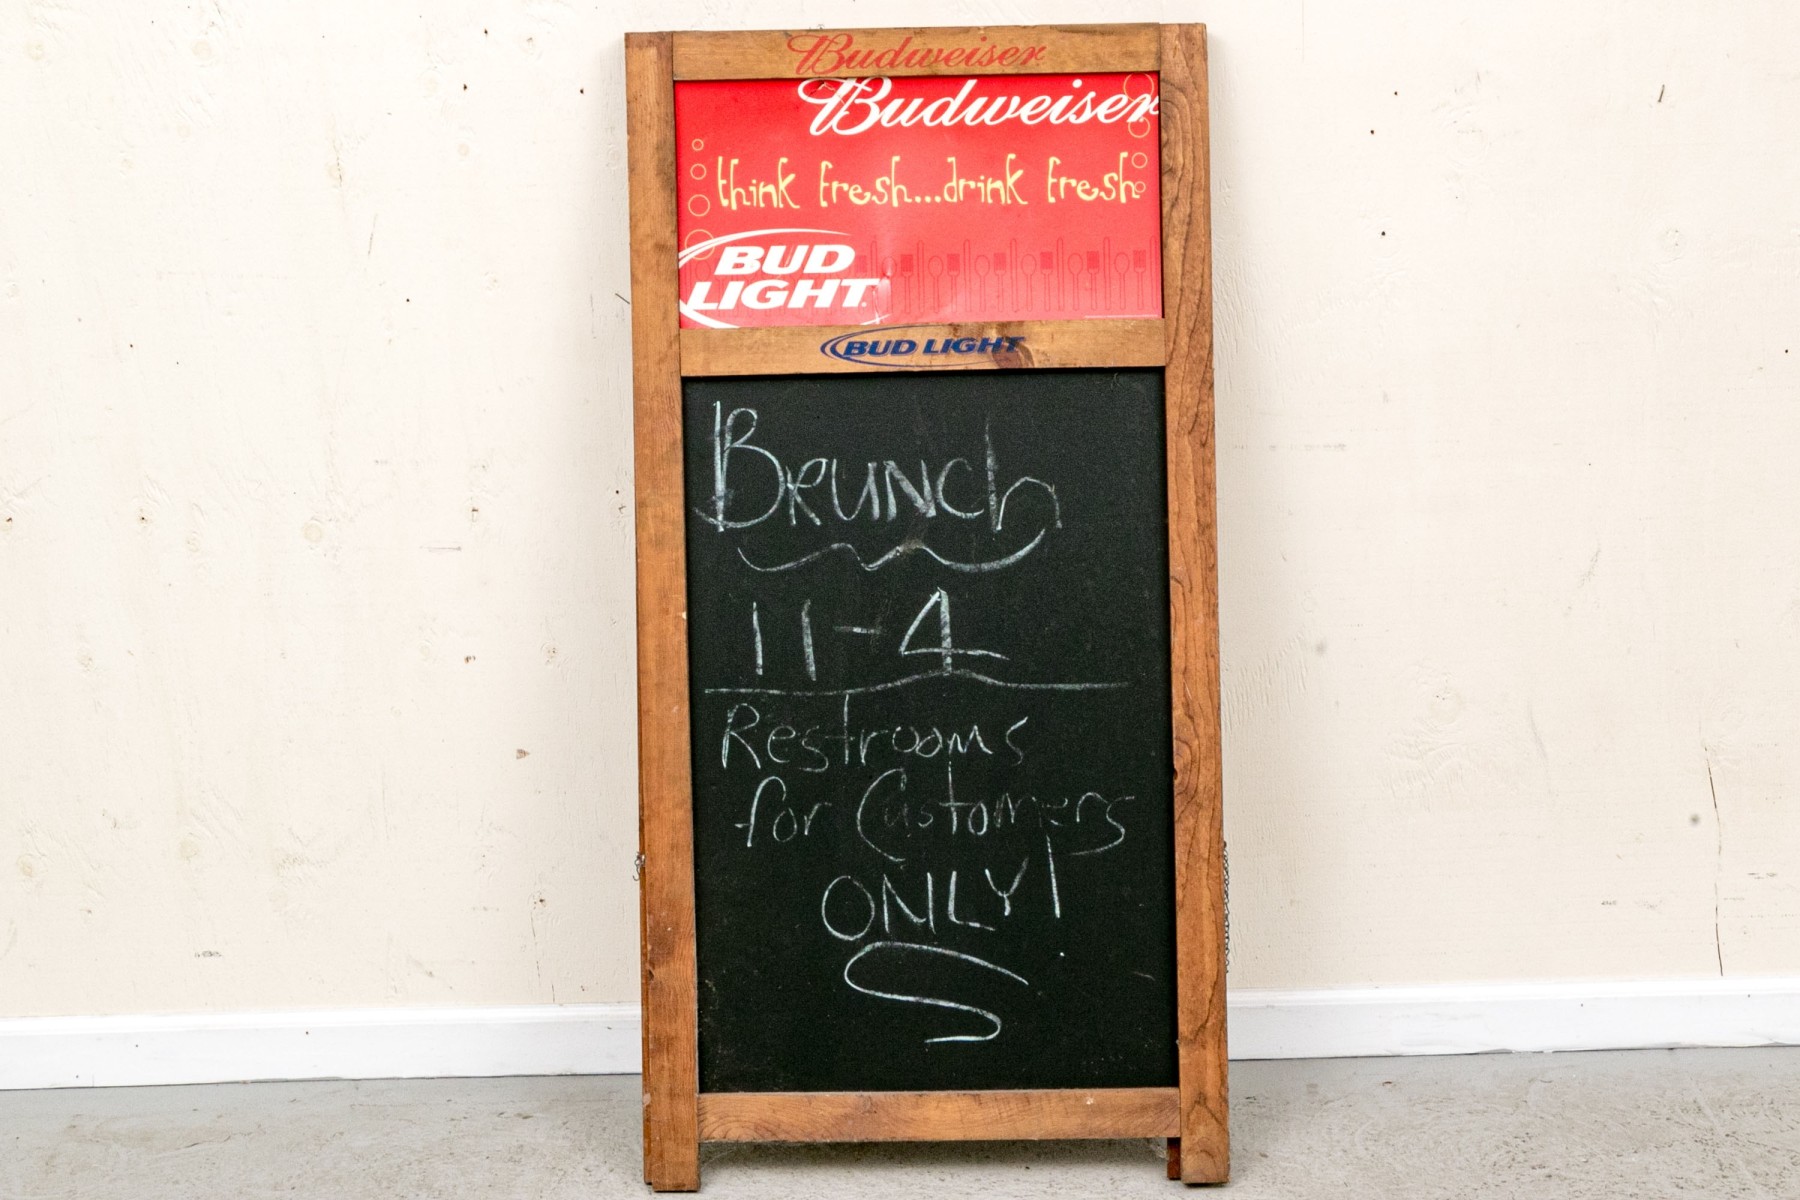 Budweiser
Budweiser
think fresh...drink fresh
BUD
LIGHT
BUD LIGHT
Brunch
11-4
Restrooms
for Customers
ONLY!